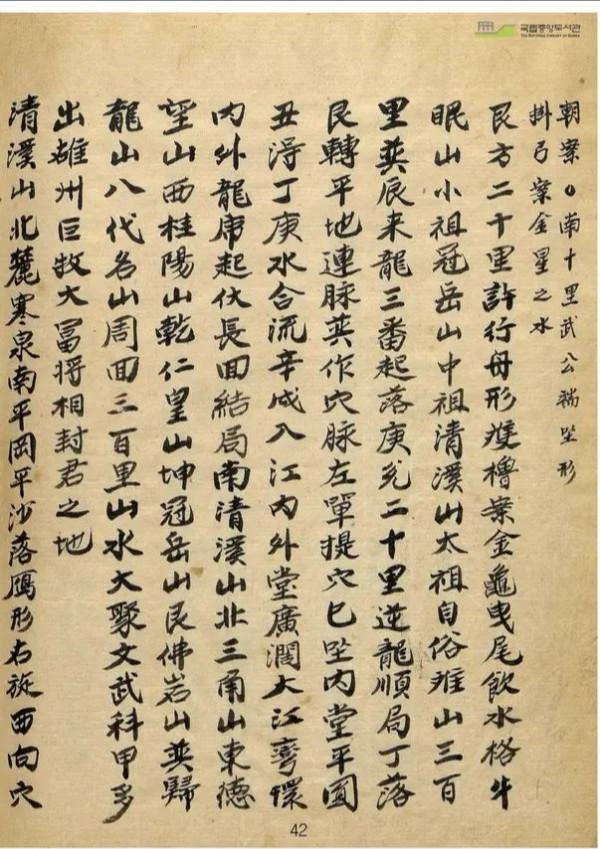 국립중앙도서관
THE NATIONAL LIBRARY OF KOREA
朝案 南十里武公端坐形
掛弓案金星之水
艮方二十里許行母形雙櫓案金龜曳尾飮水格牛
眠山小祖冠岳山中祖清溪山太祖自俗離山三百
里巽辰来龍三番起落庚兌二十里逆龍順局丁落
艮轉平地連脉巽作穴脉左單提穴巳坐内堂平圓
丑淂丁庚水合流辛戌入江内外堂廣濶大江弯環
内外龍虎起伏長回結局南清溪山北三角山東德
望山西桂陽山乾仁皇山坤冠岳山艮佛岩山巽歸
龍山八代名山周回三百里山水大聚文武科甲多
出雄州巨牧大富将相封君之地
清溪山北麓寒泉南平岡平沙落鴈形右旋西向穴
42